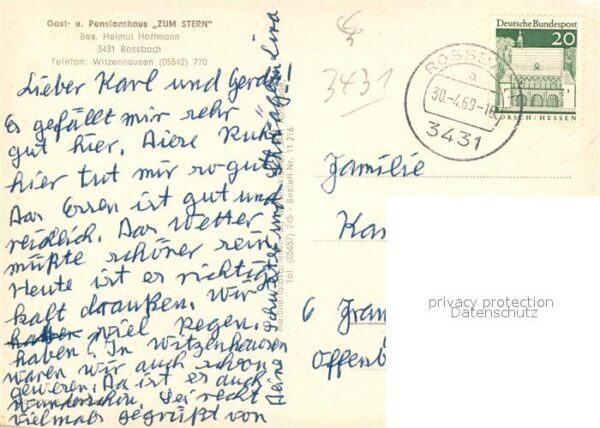 Gast- u. Pensionshaus „ZUM STERN"
Bes. Helmut Hoffmann
3431 Rossbach
Telefon: Witzenhausen (05542) 770
Lieber Karl und Gerda!
Es gefällt mir sehr
gut hier. Diese Ruhe
hier tut mir so gut.
Das Essen ist gut und
reichlich. Das Wetter
müßte schöner sein
Heute ist es richtig
kalt draußen. Wir
viel Regen.
haben! In Witzenhausen
waren wir auch schon
gewesen. Da ist es auch
wunderschön. Sei recht
vielmals gegrüßt von
Deine Schwester und Schwägerin Lisa
Tel. (05657) 245 - Bestell-Nr. 11 216
3431
ROSSB
a
30.-4.69-16
3431
Deutsche Bundespost
20
LORSCH/HESSEN
Familie
Ka
6 Fran
Offenb
privacy protection
Datenschutz